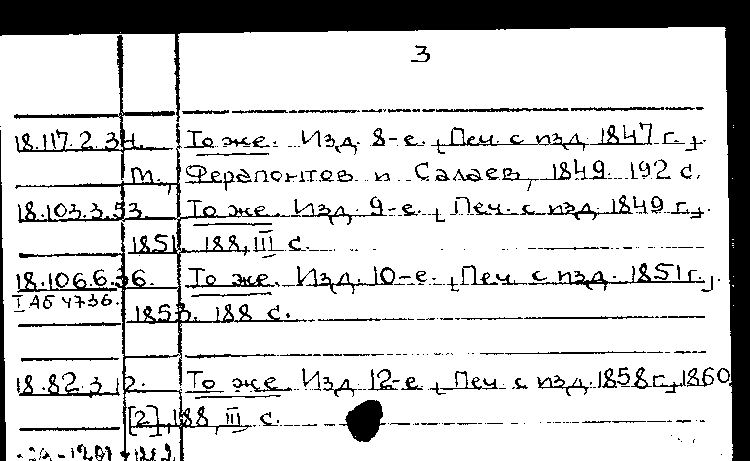 3
18.117.2.34. То же. Изд. 8-е. [Печ. с изд. 1847 г.].
М., Ферапонтов и Салаев, 1849. 192 с.
18.103.3.53. То же. Изд. 9-е. [Печ. с изд. 1849 г.].
1851. 188, III с.
18.106.6.36. То же. Изд. 10-е. [Печ. с изд. 1851 г.].
I АБ 4736.
1853. 188 с.
18.82.3.12. То же. Изд. 12-е. [Печ. с изд. 1858 г.], 1860.
[2], 188, III с.